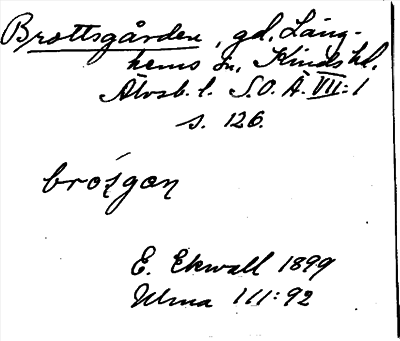 Brottsgården, gd, Lång-
hems sn, Kinds hd.
Älvsb. l. S.O.Ä. VII:1
s. 126.
E. Ekwall 1899
Ulma 111:92